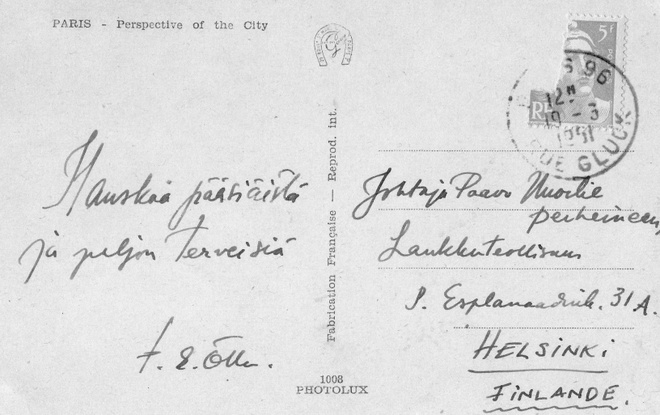 PARIS - Perspective of the City
Hauskaa pääsiäistä
ja paljon terveisiä
Fabrication Française — Reprod. int.
1008
PHOTOLUX
5F
RF
PARIS 96
12H
19-3
1951
RUE GLUCK
Johtaja Paavo
perheineen,
Laukkuteollisuus
P. Esplanaadink. 31 A.
HELSINKI
FINLANDE.